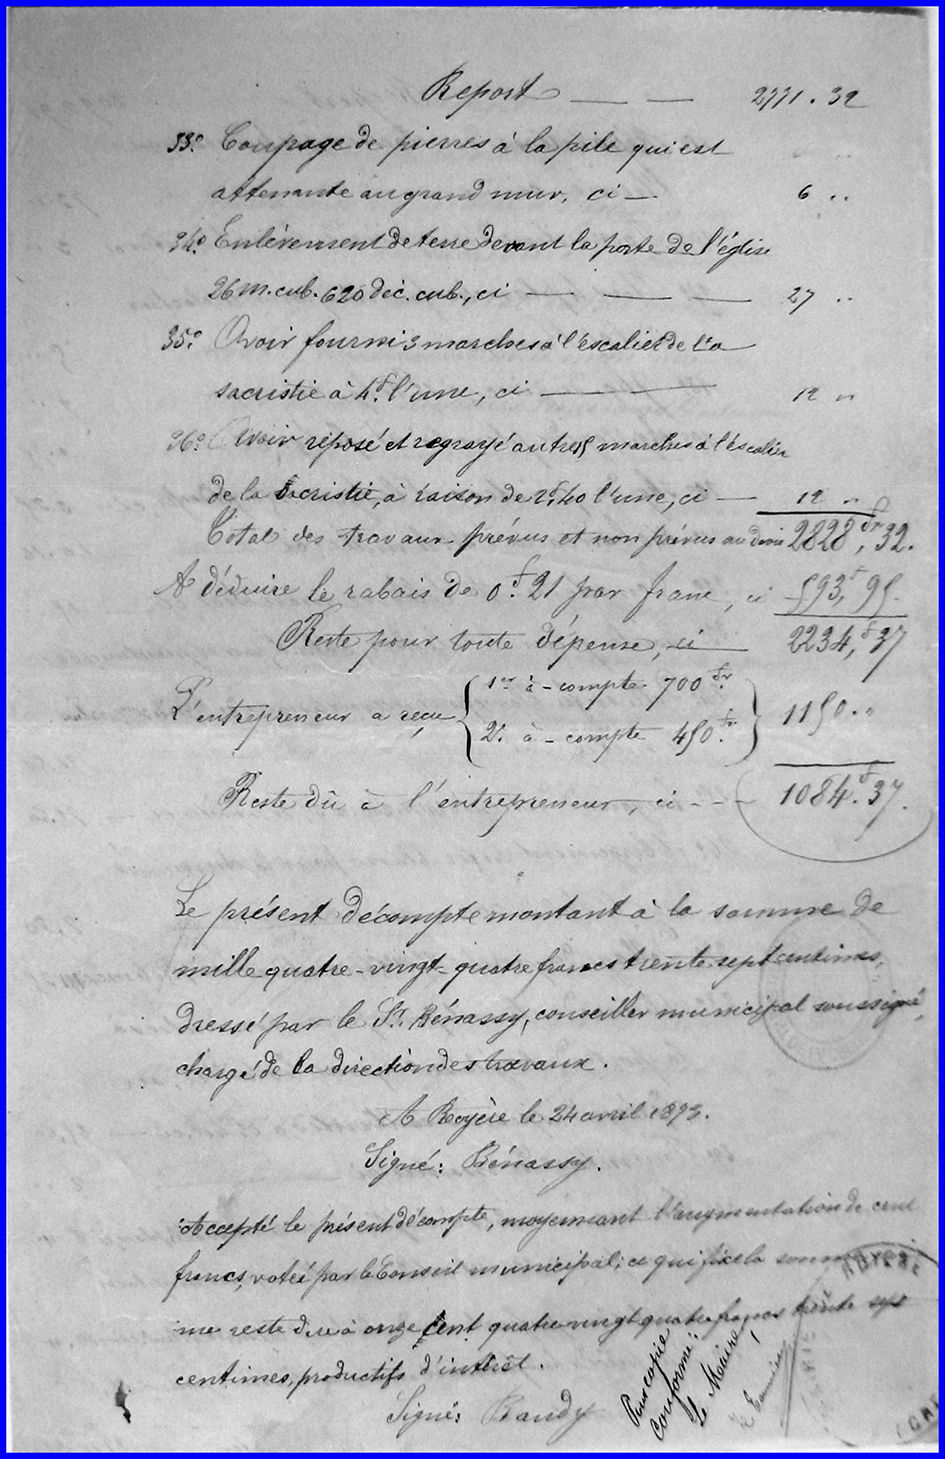 Report — — 2771.32
33º Coupage de pierres à la pile qui est
attenante au grand mur, ci — 6 ..
34º Enlèvement de terre devant la porte de l'église
26 m. cub. 620 déc. cub., ci — — — 27 ..
35º Avoir fourni 3 marches à l'escalier de la
sacristie à 4f. l'une, ci — 12 "
36º Avoir reposé et regrayé autres 5 marches à l'escalier
de la sacristie, à raison de 2f,40 l'une, ci — 12 "
Total des travaux prévus et non prévus au devis 2828fr,32.
A déduire le rabais de 0f.21 par franc, ci 593f,95.
Reste pour toute dépense, ci — 2234,f37
L'entrepreneur a reçu { 1er à-compte 700fr. } 1150.."
2e. à-compte 450fr.
Reste dû à l'entrepreneur, ci - - - 1084.f37.
Le présent décompte montant à la somme de
mille quatre-vingt-quatre francs trente sept centimes,
dressé par le Sr. Bénassy, conseiller municipal soussigné,
chargé de la direction des travaux.
A Royère le 24 avril 1893.
Signé: Bénassy.
Accepté le présent décompte, moyennant l'augmentation de cent
francs, votée par le Conseil municipal; ce qui fixe la somme
me reste due à onze cent quatre-vingt quatre francs trente sept
centimes, productifs d'intérêt.
Signé: Bandy
Pour copie
conforme
Le Maire,
ROYÈRE